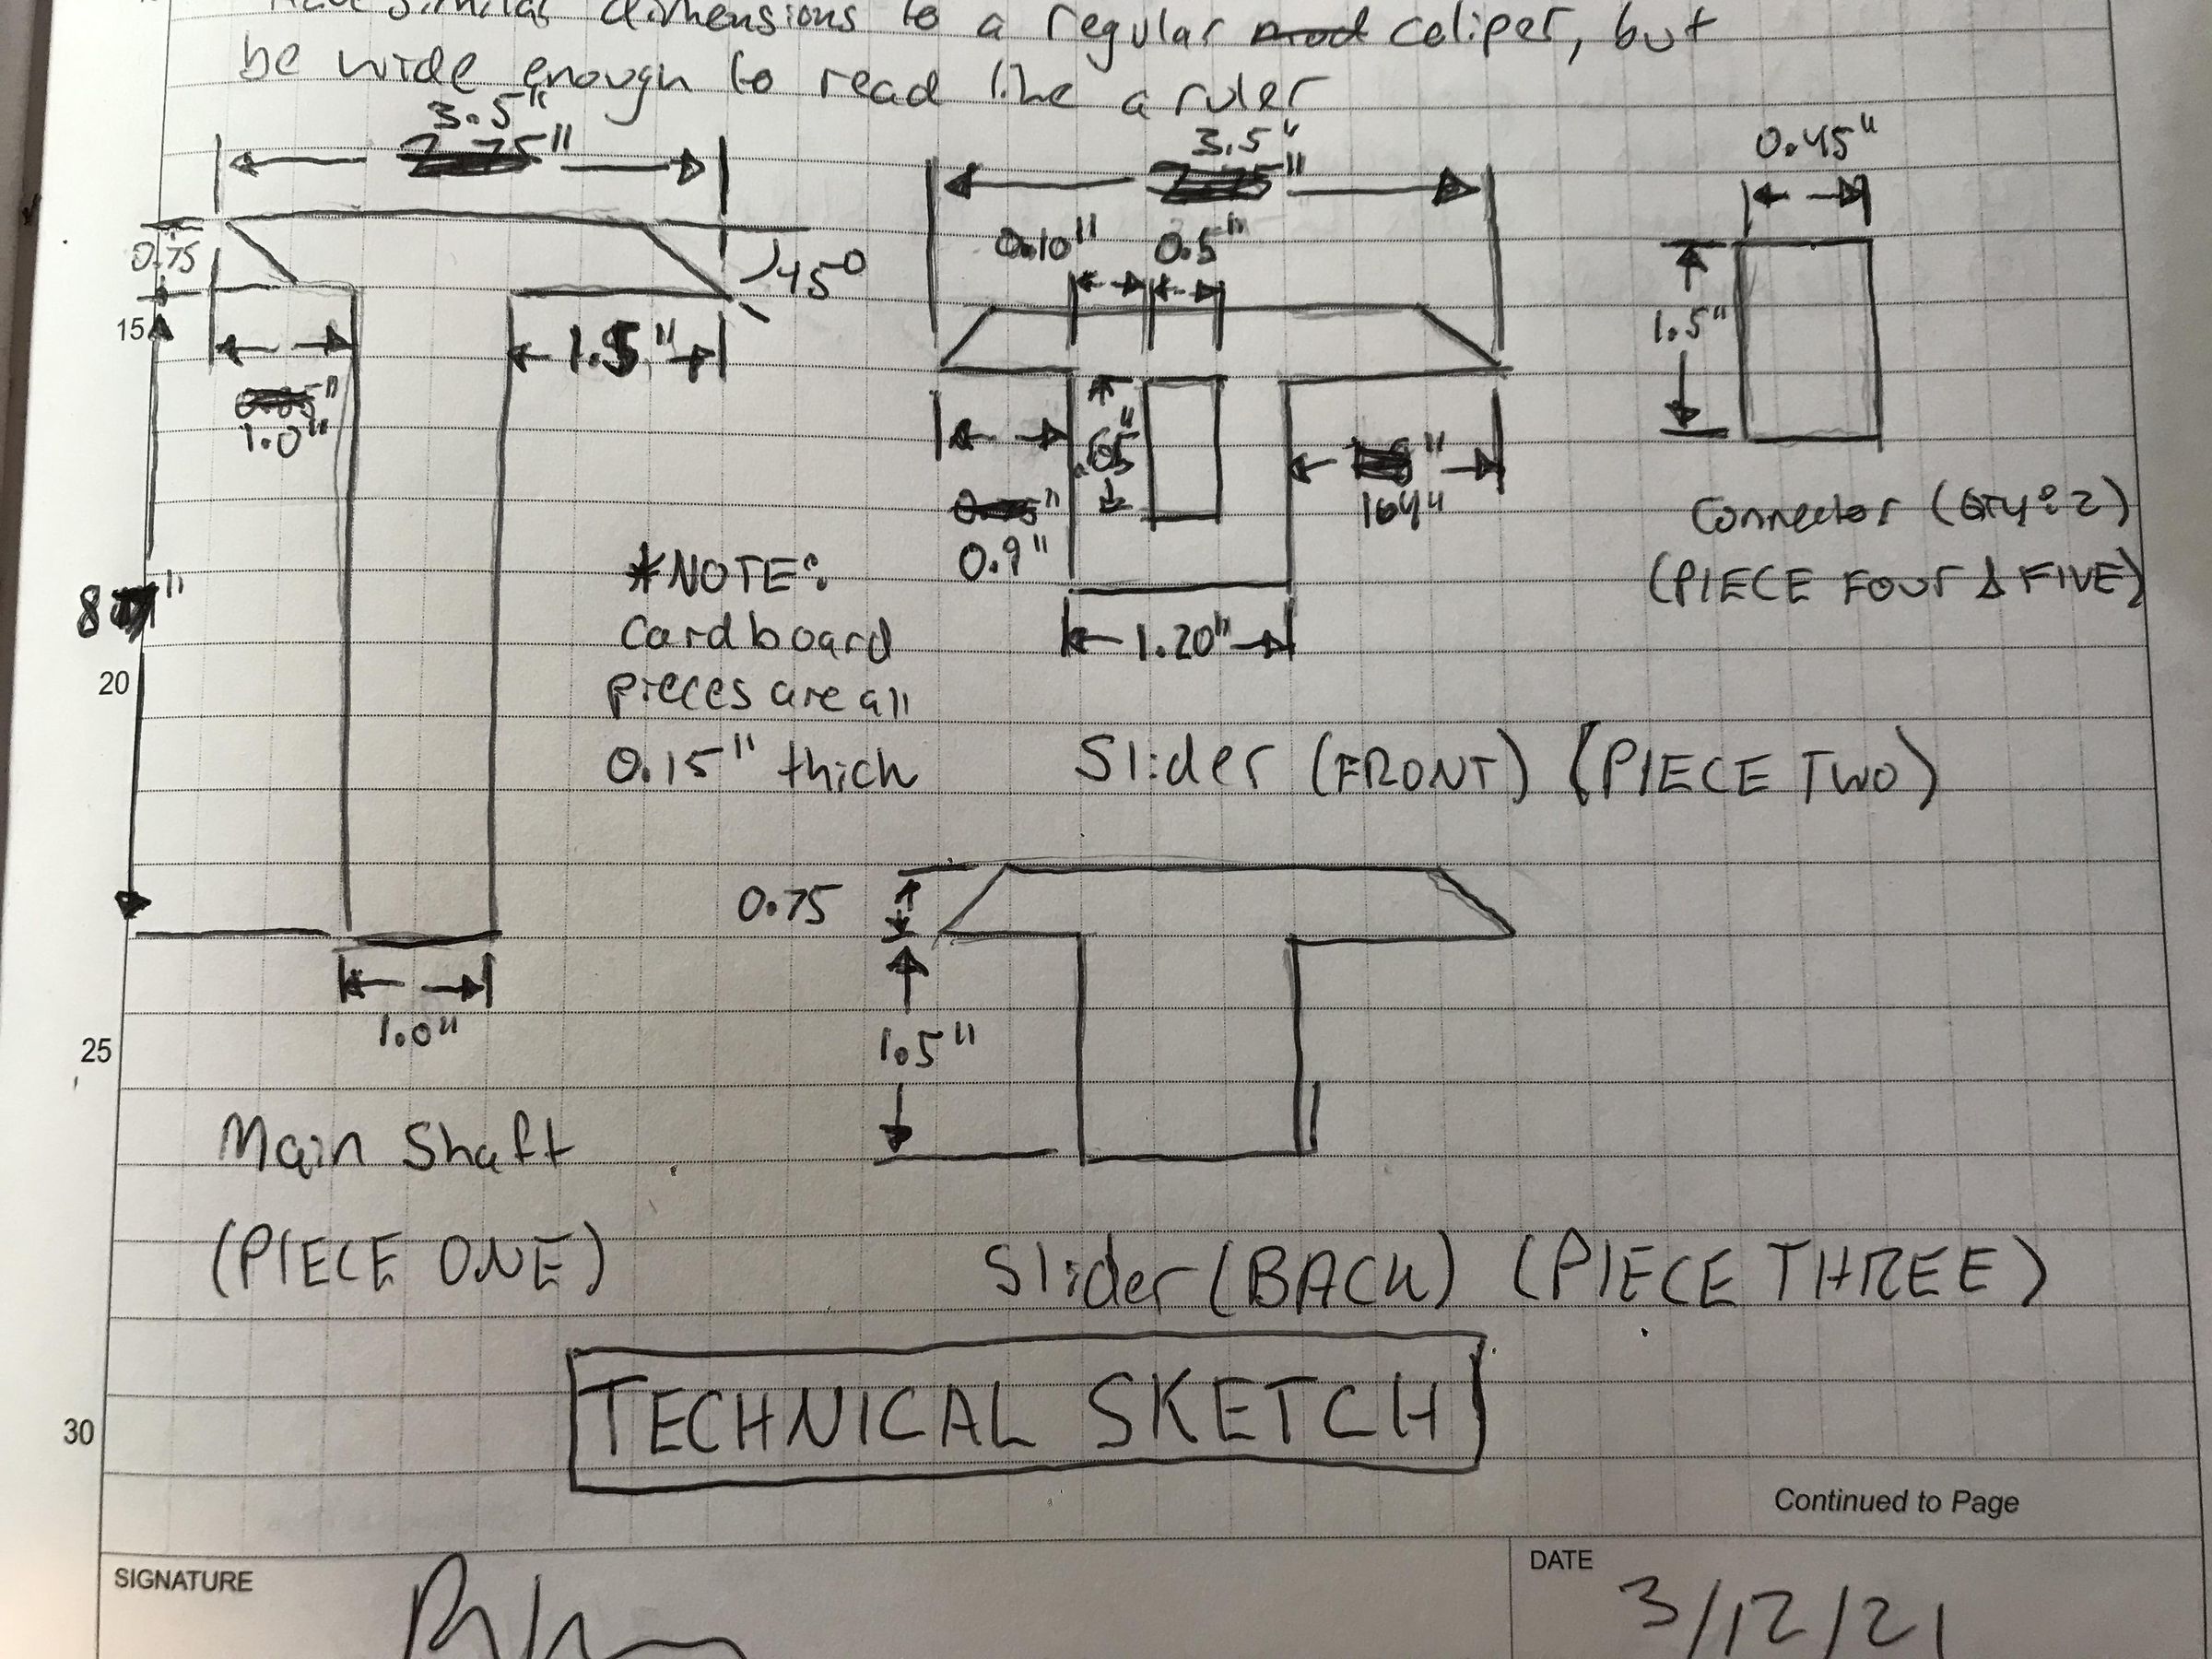 similar dimensions to a regular caliper, but
be wide enough to read like a ruler
3.5"
0.75
45°
15
1.5"
1.0"
8"
20
1.0"
25
Main Shaft
(PIECE ONE)
*NOTE:
Cardboard
pieces are all
0.15" thick
3.5"
0.10" 0.5"
.65"
0.9"
1.20"
Slider (FRONT) (PIECE TWO)
0.45"
1.5"
Connector (QTY: 2)
(PIECE FOUR & FIVE)
0.75
1.5"
Slider (BACK) (PIECE THREE)
TECHNICAL SKETCH
30
Continued to Page
SIGNATURE
DATE
3/12/21